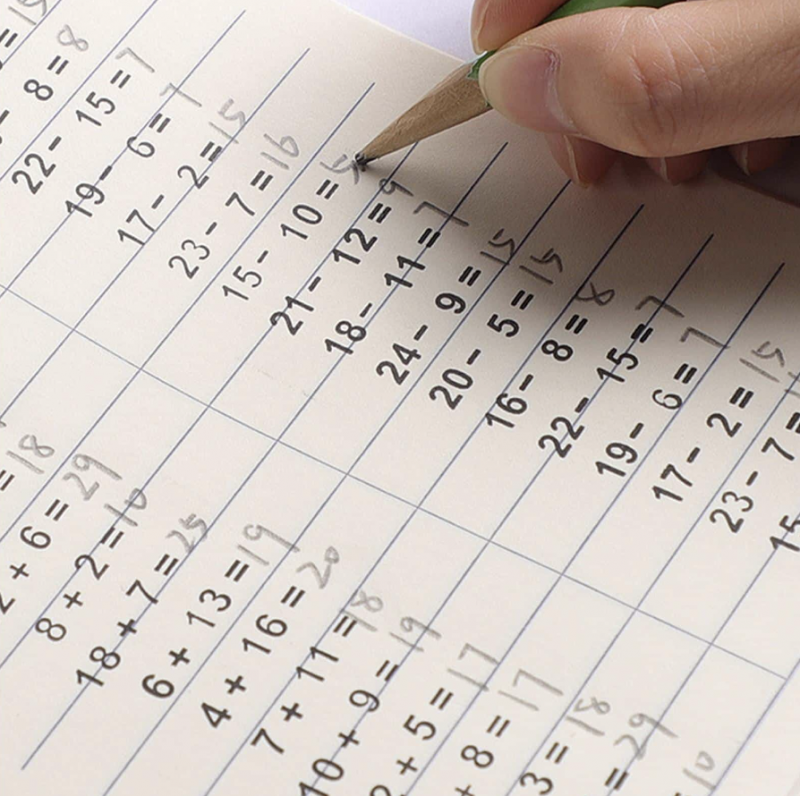 - 8 = 8
22- 15 = 7
19- 6 = 7
17- 2 = 15
23- 7 = 16
15- 10 = 5
21- 12 = 9
18- 11 = 7
24- 9 = 15
20- 5 = 15
16- 8 = 8
22- 15 = 7
19- 6 = 7
17- 2 = 15
23- 7 =
15
= 18
2 + 6 = 29
8 + 2 = 10
18 + 7 = 25
6 + 13 = 19
4 + 16 = 20
7 + 11 = 18
10 + 9 = 19
2 + 5 = 17
+ 8 = 17
3 = 18
= 29
10